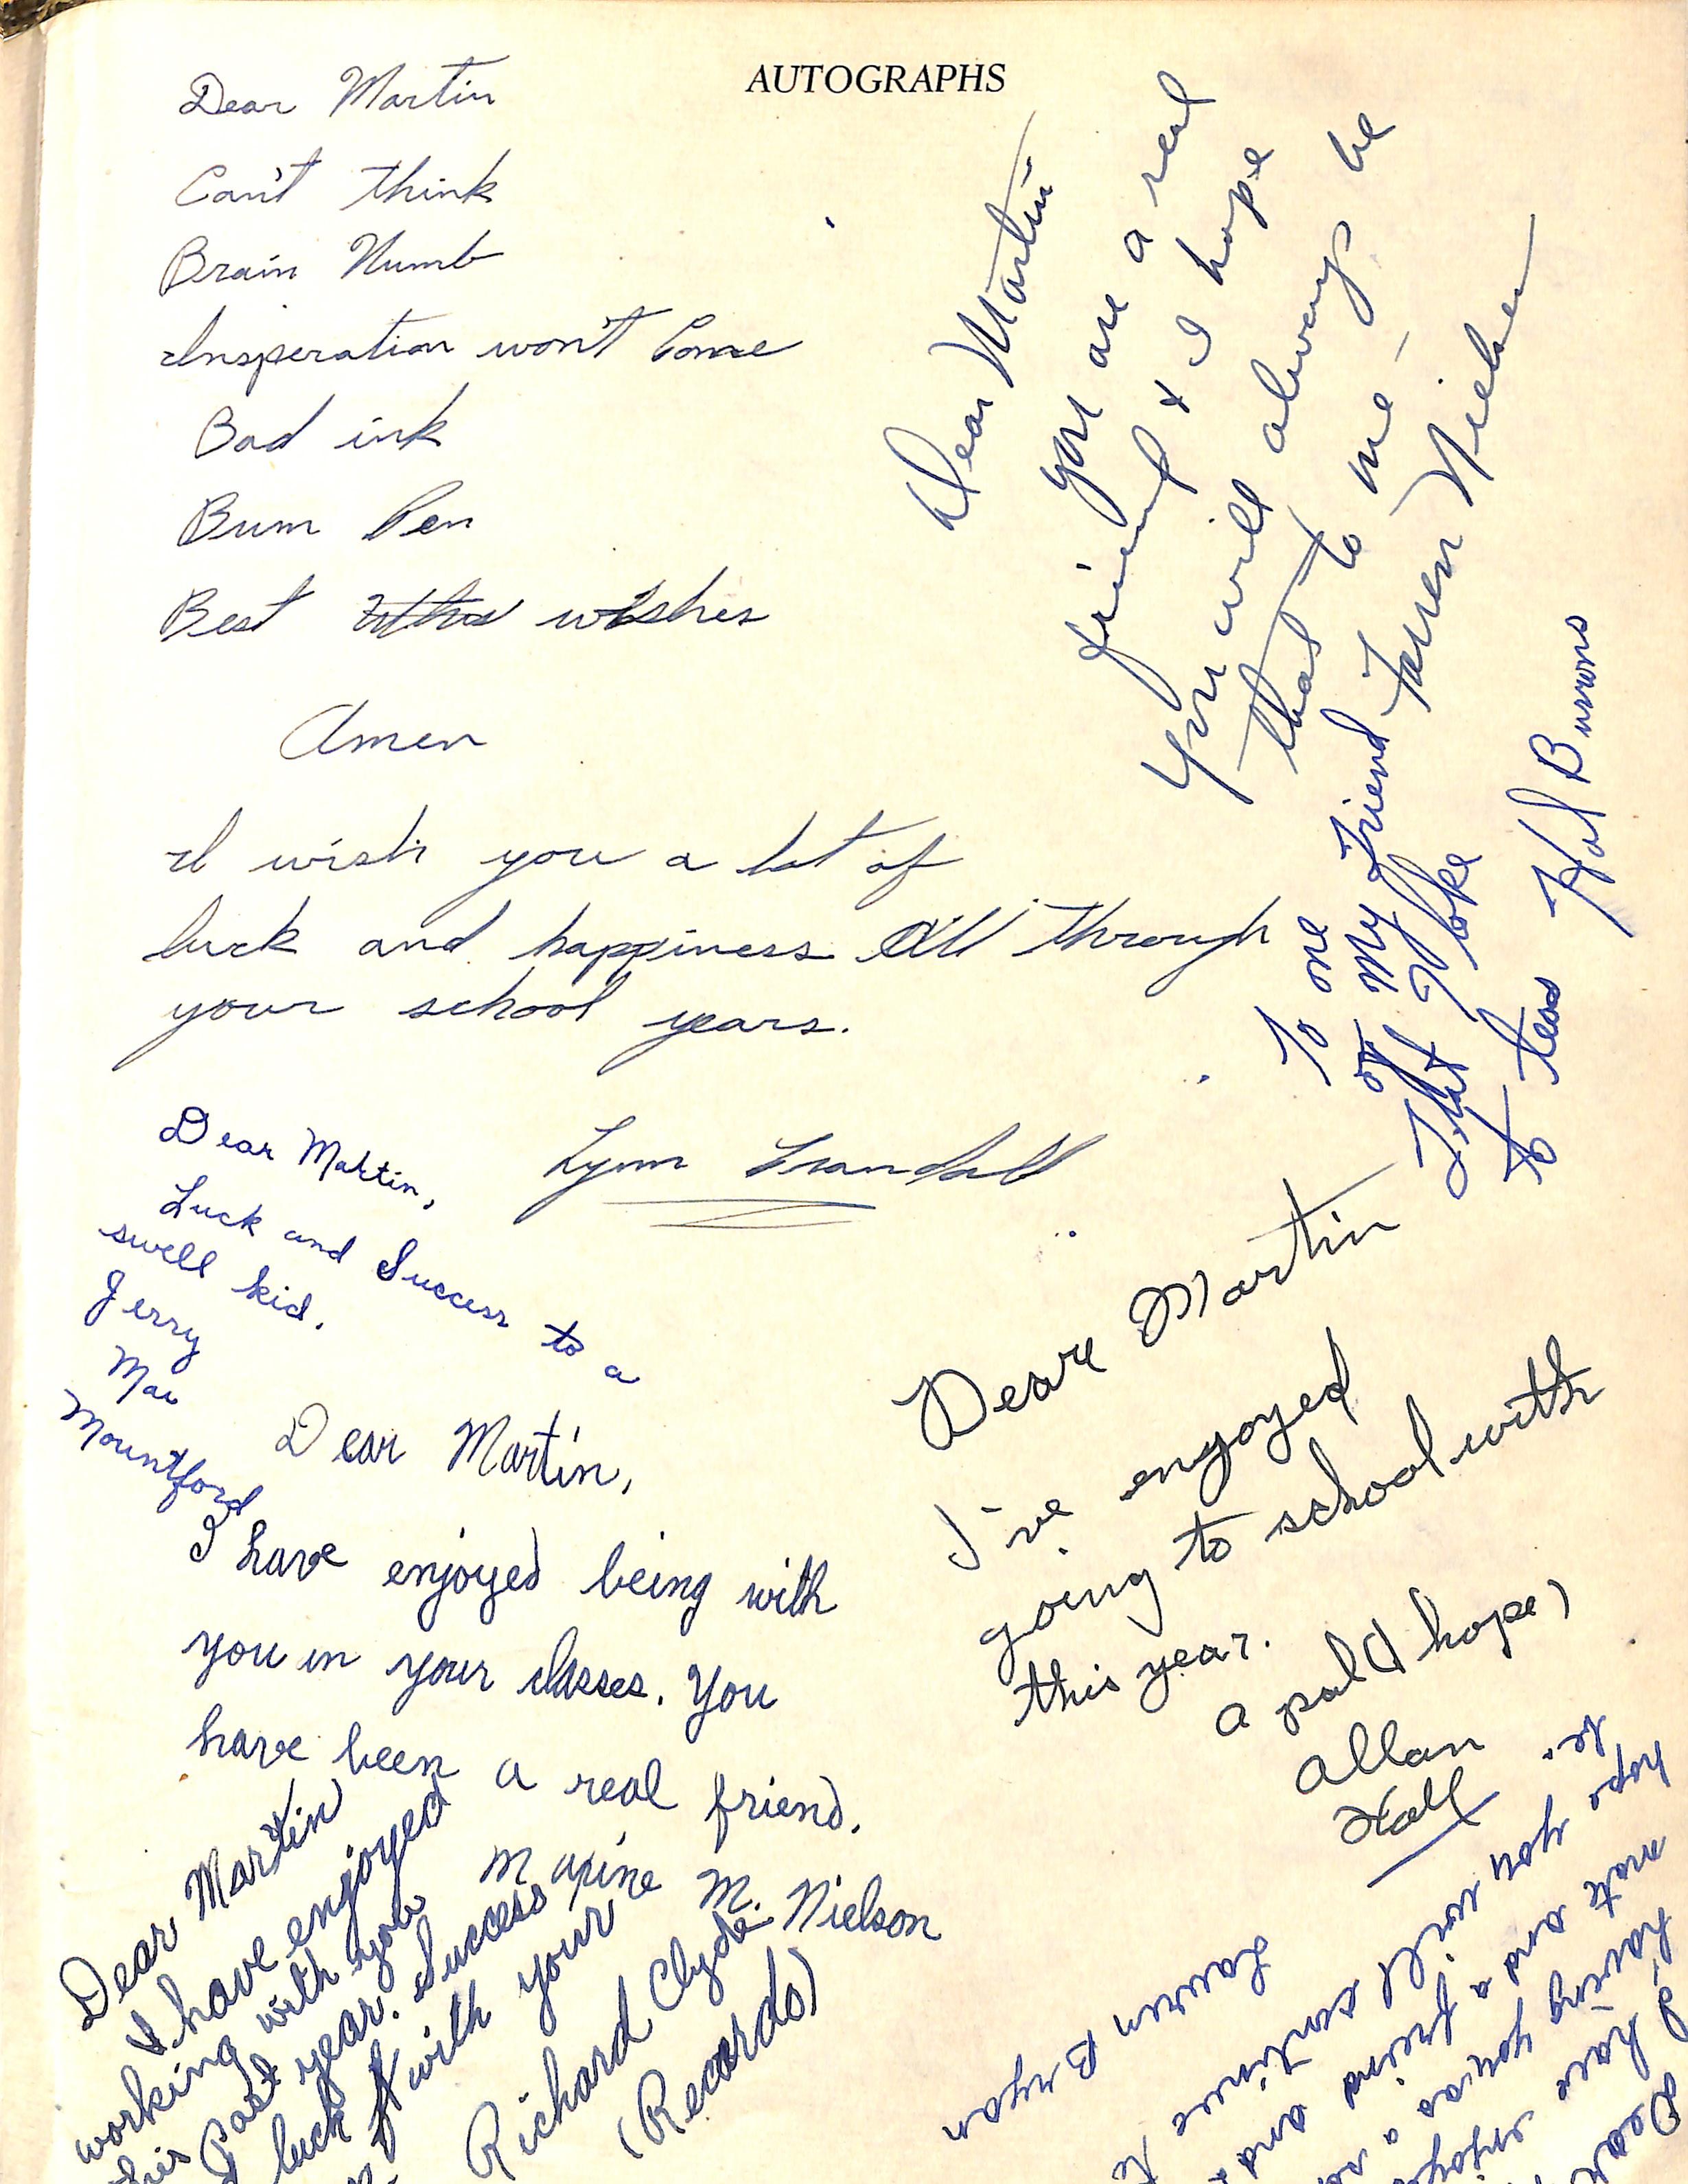 AUTOGRAPHS
Dear Martin
Can't think
Brain Numb
Insperation won't Come
Bad ink
Bum Pen
Best wishes
Amen
I wish you a lot of
luck and happiness All through
your school years.
Lynn Crandall
Dear Martin
you are a real
friend & I hope
you will always be
that to me —
Nielsen
To one
of my friend
that I like
to teas Hal Burrows
Dear Martin,
Luck and Success to a
swell kid.
Jerry
Mae
Mountford
Dear Martin,
I have enjoyed being with
you in your classes. You
have been a real friend.
Maxine M. Nielson
Deare Martin
I've enyoyed
going to school with
this year.
a pal (I hope)
Allan
Hall
Dear Martin
I have enjoyed
working with you
this Past year. Success
luck with your
Richard Clyde
(Recardo)
Dear
I have enjoyed
having you as a
mate and a friend and
hope you will continue
to.
Lauren Bryan